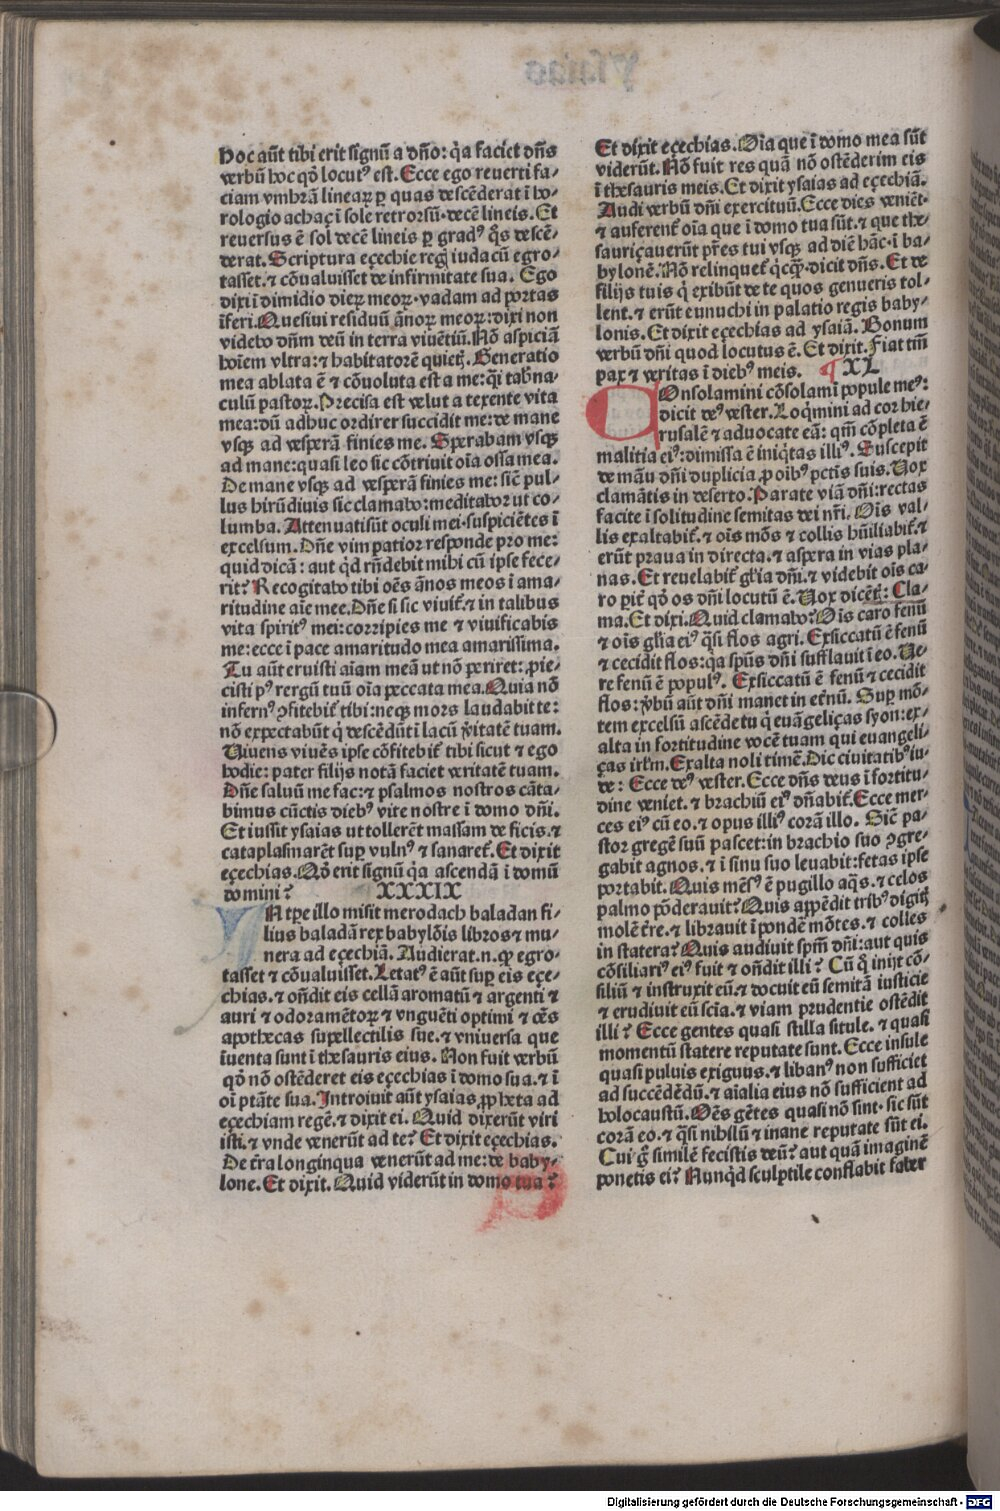 hoc aūt tibi erit signū a dño: q̇a faciet dñs
verbū hoc qđ locut⁹ est. Ecce ego reuerti fa-
ciam vmbrā lineaꝝ ꝑ quas descēderat ī ho-
rologio achaç ī sole retrorsū·decē lineis. Et
reuersus ē sol decē lineis ꝑ grad⁹ q̇s descē-
derat. Scriptura eçechie reg͛ iuda cū egro-
tasset.⁊ cōualuisset de infirmitate sua. Ego
dixi ī dimidio dieꝝ meoꝝ·vadam ad portas
īferi. Quesiui residuū ānoꝝ meoꝝ: dixi non
videbo dñm deū in terra viuētiū. Nō aspiciā
hoīem vltra: ⁊ habitatorē quiet͛. Generatio
mea ablata ē ⁊ cōuoluta est a me: q̇si tab̄na-
culū pastoꝝ. Precisa est velut a texente vita
mea: dū adhuc ordirer succidit me: de mane
vsqꝫ ad vesperā finies me. Sperabam vsqꝫ
ad mane: quasi leo sic cōtriuit oīa ossa mea.
De mane vsqꝫ ad vesperā finies me: sic̄ pul-
lus hirūdinis sic clamabo: meditabor ut co-
lumba. Attenuati sūt oculi mei·suspiciētes ī
excelsum. Dñe vim patior responde pro me:
quid dicā: aut q̇d rñdebit mihi cū ipse fece-
rit? Recogitabo tibi oēs ānos meos ī ama-
ritudine aīe mee. Dñe si sic viuit͛.⁊ in talibus
vita spirit⁹ mei: corripies me ⁊ viuificabis
me: ecce ī pace amaritudo mea amarissima.
Tu aūt eruisti aīam meā ut nō periret: ꝓie-
cisti p⁹ tergū tuū oīa peccata mea. Quia nō
infern⁹ ꝯfitebit͛ tibi: neqꝫ mors laudabit te:
nō expectabūt q̇ descēdūt ī lacū v̓itatē tuam.
Viuens viuēs ipse cōfitebit͛ tibi sicut ⁊ ego
hodie: pater filijs notā faciet veritatē tuam.
Dñe saluū me fac: ⁊ psalmos nostros cāta-
bimus cūctis dieb⁹ vite nostre ī domo dñi.
Et iussit ysaias ut tollerēt massam de ficis.⁊
cataplasmarēt suꝑ vuln⁹ ⁊ sanaret͛. Et dixit
eçechias. Qđ erit signū q̇a ascendā ī domū
domini? XXXIX
N tꝑe illo misit merodach baladan fi-
lius baladā rex babylōis libros ⁊ mu-
nera ad eçechiā. Audierat.n.ꝙ egro-
tasset ⁊ cōualuisset. Letat⁹ ē aūt suꝑ eis eçe-
chias.⁊ oñdit eis cellā aromatū ⁊ argenti ⁊
auri ⁊ odoramētoꝝ ⁊ vnguēti optimi ⁊ oēs
apothecas supellectilis sue.⁊ vniuersa que
īuenta sunt ī thesauris eius. Non fuit verbū
qđ nō ostēderet eis eçechias ī domo sua.⁊ ī
oī ptāte sua. Introiuit aūt ysaias ꝓpheta ad
eçechiam regē.⁊ dixit ei. Quid dixerūt viri
isti.⁊ vnde venerūt ad te? Et dixit eçechias.
De t̄ra longinqua venerūt ad me: de baby-
lone. Et dixit. Quid viderūt in domo tua?
Et dixit eçechias. Oīa que ī domo mea sūt
viderūt. Nō fuit res quā nō ostēderim eis
ī thesauris meis. Et dixit ysaias ad eçechiā.
Audi verbū dñi exercituū. Ecce dies veniēt-
⁊ auferent͛ oīa que ī domo tua sūt.⁊ que the-
sauriçauerūt p̄res tui vsqꝫ ad diē hāc·ī ba-
bylonē. Nō relinquet͛ q̇cq̄ꝫ·dicit dñs. Et de
filijs tuis q̇ exibūt de te quos genueris tol-
lent.⁊ erūt eunuchi in palatio regis baby-
lonis. Et dixit eçechias ad ysaiā. Bonum
verbū dñi quod locutus ē. Et dixit. Fiat tm̄
pax ⁊ veritas ī dieb⁹ meis. XL
COnsolamini cōsolami popule me⁹:
dicit de⁹ vester. Loq̇mini ad cor hie-
rusalē ⁊ aduocate eā: qm̄ cōpleta ē
malitia ei⁹: dimissa ē iniq̇tas illi⁹. Suscepit
de māu dñi duplicia ꝓ oīb⁹ pctīs suis. Vox
clamātis in deserto. Parate viā dñi: rectas
facite ī solitudine semitas dei nr̄i. Oīs val-
lis exaltabit͛.⁊ oīs mōs ⁊ collis hūiliabit͛.⁊
erūt praua in directa.⁊ aspera in vias pla-
nas. Et reuelabit͛ glīa dñi.⁊ videbit oīs ca-
ro ꝑit͛ qđ os dñi locutū ē. Vox dicēt͛: Cla-
ma. Et dixi. Quid clamabo? Oīs caro fenū
⁊ oīs glīa ei⁹ q̇si flos agri. Exsiccatū ē fenū
⁊ cecidit flos: q̇a sp̄us dñi sufflauit ī eo. Ve-
re fenū ē popul⁹. Exsiccatū ē fenū ⁊ cecidit
flos: v̓bū aūt dñi manet in et̄nū. Suꝑ mō-
tem excelsū ascēde tu q̇ euāgeliças syon: ex-
alta in fortitudine vocē tuam qui euangeli-
ças irl̄m. Exalta noli timē. Dic ciuitatib⁹ iu-
de: Ecce de⁹ vester. Ecce dñs deus ī fortitu-
dine veniet.⁊ brachiū ei⁹ dñabit͛. Ecce mer-
ces ei⁹ cū eo.⁊ opus illi⁹ corā illo. Sic̄ pa-
stor gregē suū pascet: in brachio suo ꝯgre-
gabit agnos.⁊ ī sinu suo leuabit: fetas ipse
portabit. Quis mēs⁹ ē pugillo aq̇s.⁊ celos
palmo pōderauit? Quis appēdit trib⁹ digit͛
molē t̄re.⁊ librauit ī pondē mōtes.⁊ colles
in statera? Quis audiuit spm̄ dñi: aut quis
cōsiliari⁹ ei⁹ fuit ⁊ oñdit illi? Cū q̇ inijt cō-
siliū ⁊ instruxit eū.⁊ docuit eū semitā iusticie
⁊ erudiuit eū scīa.⁊ viam prudentie ostēdit
illi? Ecce gentes quasi stilla situle.⁊ quasi
momentū statere reputate sunt. Ecce insule
quasi puluis exiguus.⁊ liban⁹ non sufficiet
ad succēdēdū.⁊ aīalia eius nō sufficient ad
holocaustū. Oēs gētes quasi nō sint·sic sūt
corā eo.⁊ q̇si nihilū ⁊ inane reputate sūt ei.
Cui g̊ similē fecistis deū? aut quā imaginē
ponetis ei? Nunq̇d sculptile conflabit faber
Digitalisierung gefördert durch die Deutsche Forschungsgemeinschaft - DFG